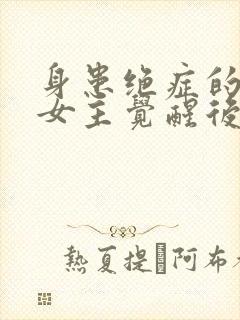 身患绝症的
女主覺醒後
熱夏提 阿布